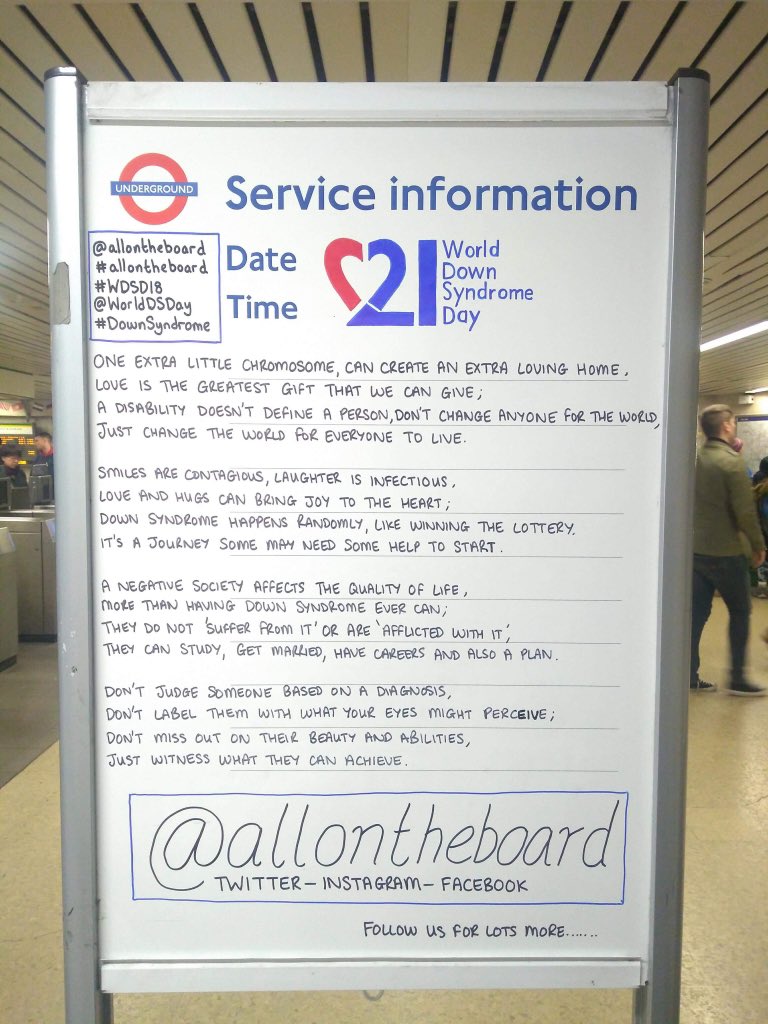 UNDERGROUND
Service information
@allontheboard
#allontheboard
#WDSD18
@WorldDSDay
#DownSyndrome
Date
Time
21
World
Down
Syndrome
Day
ONE EXTRA LITTLE CHROMOSOME, CAN CREATE AN EXTRA LOVING HOME,
LOVE IS THE GREATEST GIFT THAT WE CAN GIVE;
A DISABILITY DOESN'T DEFINE A PERSON, DON'T CHANGE ANYONE FOR THE WORLD,
JUST CHANGE THE WORLD FOR EVERYONE TO LIVE.
SMILES ARE CONTAGIOUS, LAUGHTER IS INFECTIOUS,
LOVE AND HUGS CAN BRING JOY TO THE HEART;
DOWN SYNDROME HAPPENS RANDOMLY, LIKE WINNING THE LOTTERY.
IT'S A JOURNEY SOME MAY NEED SOME HELP TO START.
A NEGATIVE SOCIETY AFFECTS THE QUALITY OF LIFE,
MORE THAN HAVING DOWN SYNDROME EVER CAN;
THEY DO NOT 'SUFFER FROM IT' OR ARE 'AFFLICTED WITH IT',
THEY CAN STUDY, GET MARRIED, HAVE CAREERS AND ALSO A PLAN.
DON'T JUDGE SOMEONE BASED ON A DIAGNOSIS,
DON'T LABEL THEM WITH WHAT YOUR EYES MIGHT PERCEIVE;
DON'T MISS OUT ON THEIR BEAUTY AND ABILITIES,
JUST WITNESS WHAT THEY CAN ACHIEVE.
@allontheboard
TWITTER - INSTAGRAM - FACEBOOK
FOLLOW US FOR LOTS MORE......